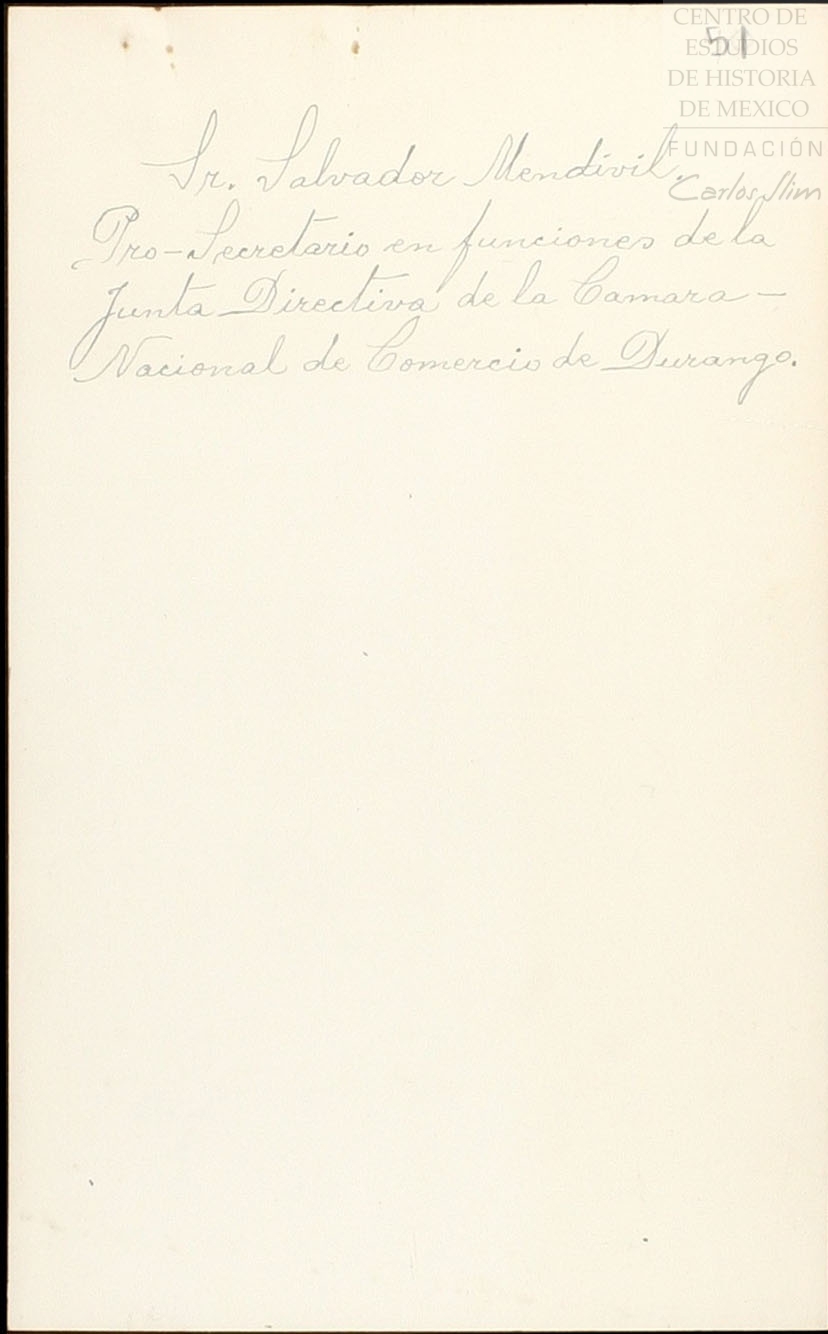 CENTRO DE
ESTUDIOS
51
DE HISTORIA
DE MEXICO
FUNDACIÓN
Carlos Slim
Sr. Salvador Mendívil.
Pro-Secretario en funciones de la
Junta Directiva de la Camara -
Nacional de Comercio de Durango.